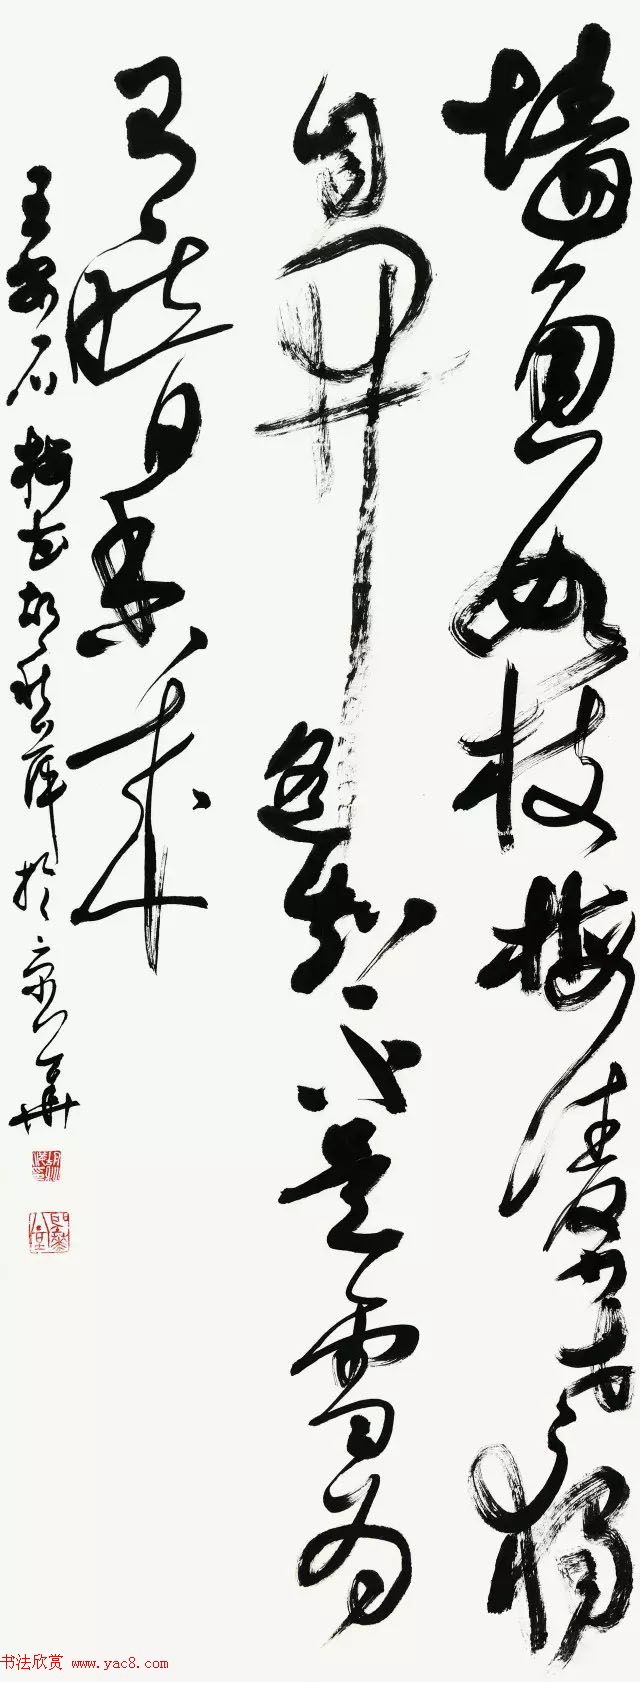 墙角数枝梅凌寒独
自开遥知不是雪为
有暗香来
王安石梅花胡秋萍於京華
书法欣赏 www.yac8.com